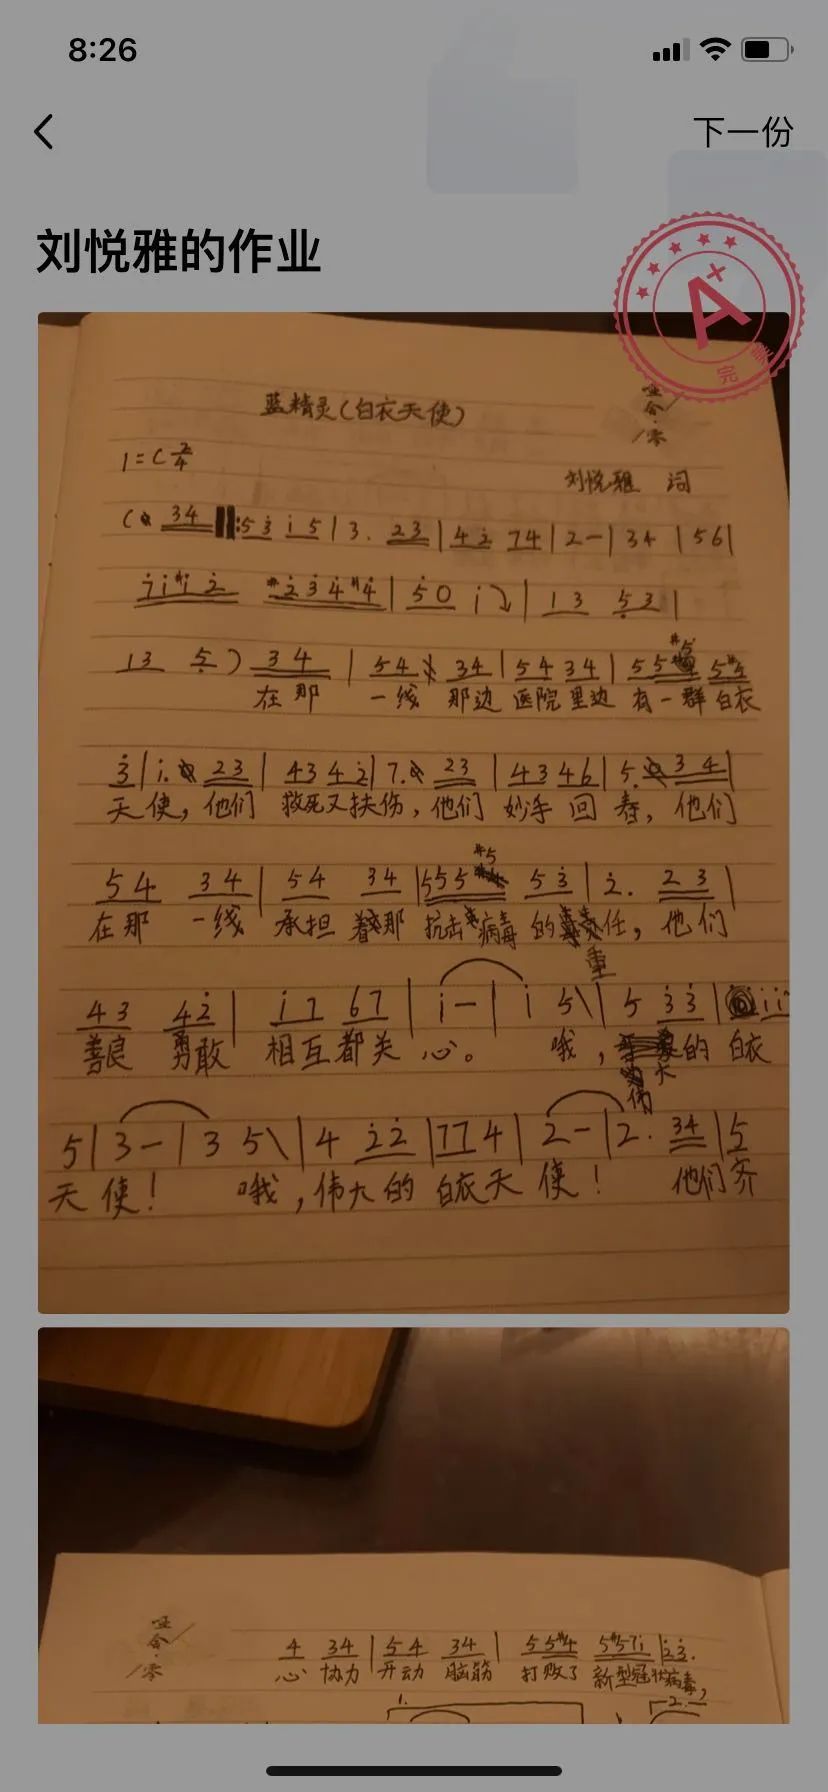 8:26
下一份
刘悦雅的作业
A+
完美
蓝精灵(白衣天使)
1=C 2/4
刘悦雅 词
( 34 ‖: 5 3̇ i 5 | 3. 23 | 4 2̇ 74 | 2 — | 34 | 56 |
7̇ i #i 2̇ #2̇ 3̇ 4̇ #4̇ | 5̇ 0 i | 1 3 5̣ 3 |
13 5̣ ) 34 | 54 34 | 54 34 | 55 #5 5#5
在那 一线 那边 医院里边 有一群 白衣
3̇ | i. 23 | 43 42̇ | 7. 23 | 4346 | 5. 34 |
天使,他们 救死又扶伤,他们 妙手回春,他们
54 34 | 54 34 | 555 #5 53̇ | 2̇. 23 |
在那 一线 承担着那 抗击病毒的重任,他们
43 42̇ | i7 67 | i — | i 5 | 5 3̇3̇ | i i i
善良 勇敢 相互都关心。 哦,伟大的 白衣
5 | 3 — | 3 5 | 4 2̇2̇ | 77 4 | 2 — | 2. 34 | 5
天使! 哦,伟大的 白衣天使! 他们齐
4 34 | 54 34 | 55#4 5#57i | 2̇3̇.
心 协力 开动 脑筋 打败了 新型冠状病毒,
1. 2.